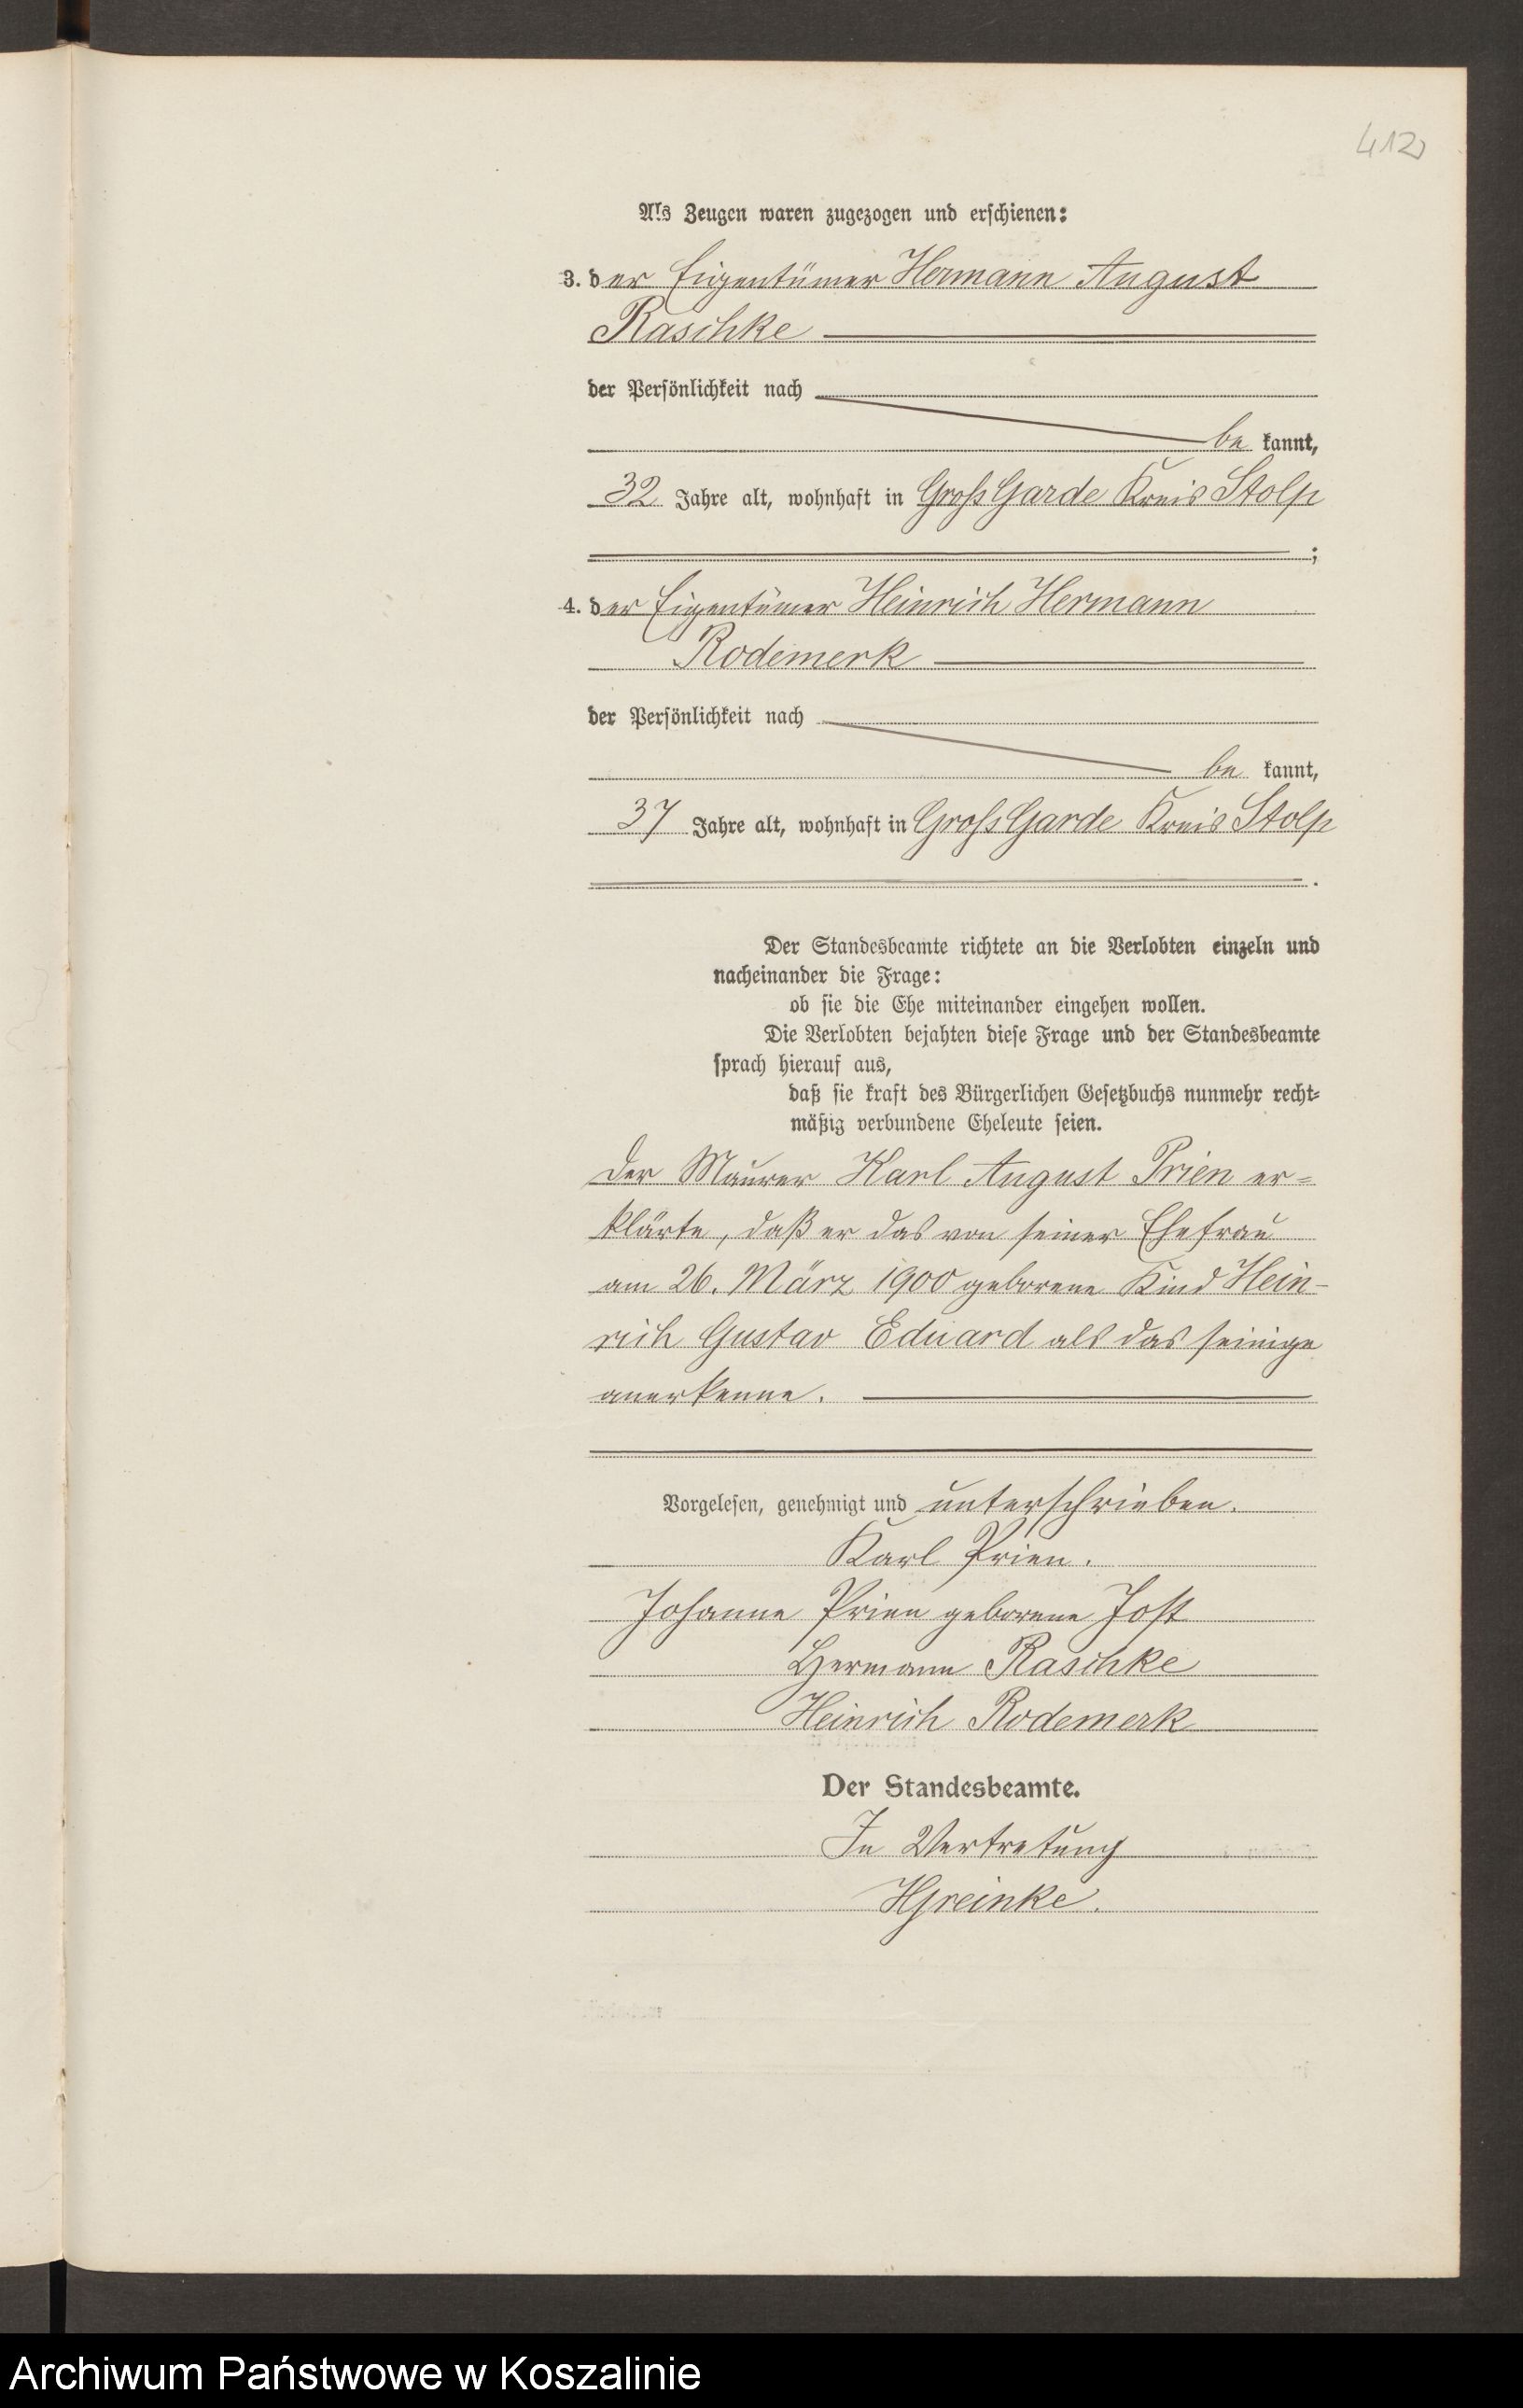 412
Als Zeugen waren zugezogen und erschienen:
3. der Eigentümer Hermann August
Raschke
der Persönlichkeit nach
be kannt,
32 Jahre alt, wohnhaft in Groß Garde Kreis Stolp
;
4. der Eigentümer Heinrich Hermann
Rodemerk
der Persönlichkeit nach
be kannt,
37 Jahre alt, wohnhaft in Groß Garde Kreis Stolp
.
Der Standesbeamte richtete an die Verlobten einzeln und
nacheinander die Frage:
ob sie die Ehe miteinander eingehen wollen.
Die Verlobten bejahten diese Frage und der Standesbeamte
sprach hierauf aus,
daß sie kraft des Bürgerlichen Gesetzbuchs nunmehr recht-
mäßig verbundene Eheleute seien.
Der Maurer Karl August Prien er-
klärte, daß er das von seiner Ehefrau
am 26. März 1900 geborene Kind Hein-
rich Gustav Eduard als das seinige
anerkenne.
Vorgelesen, genehmigt und unterschrieben.
Karl Prien.
Johanne Prien geborene Jost
Hermann Raschke
Heinrich Rodemerk
Der Standesbeamte.
In Vertretung
HGreinke.
Archiwum Państwowe w Koszalinie